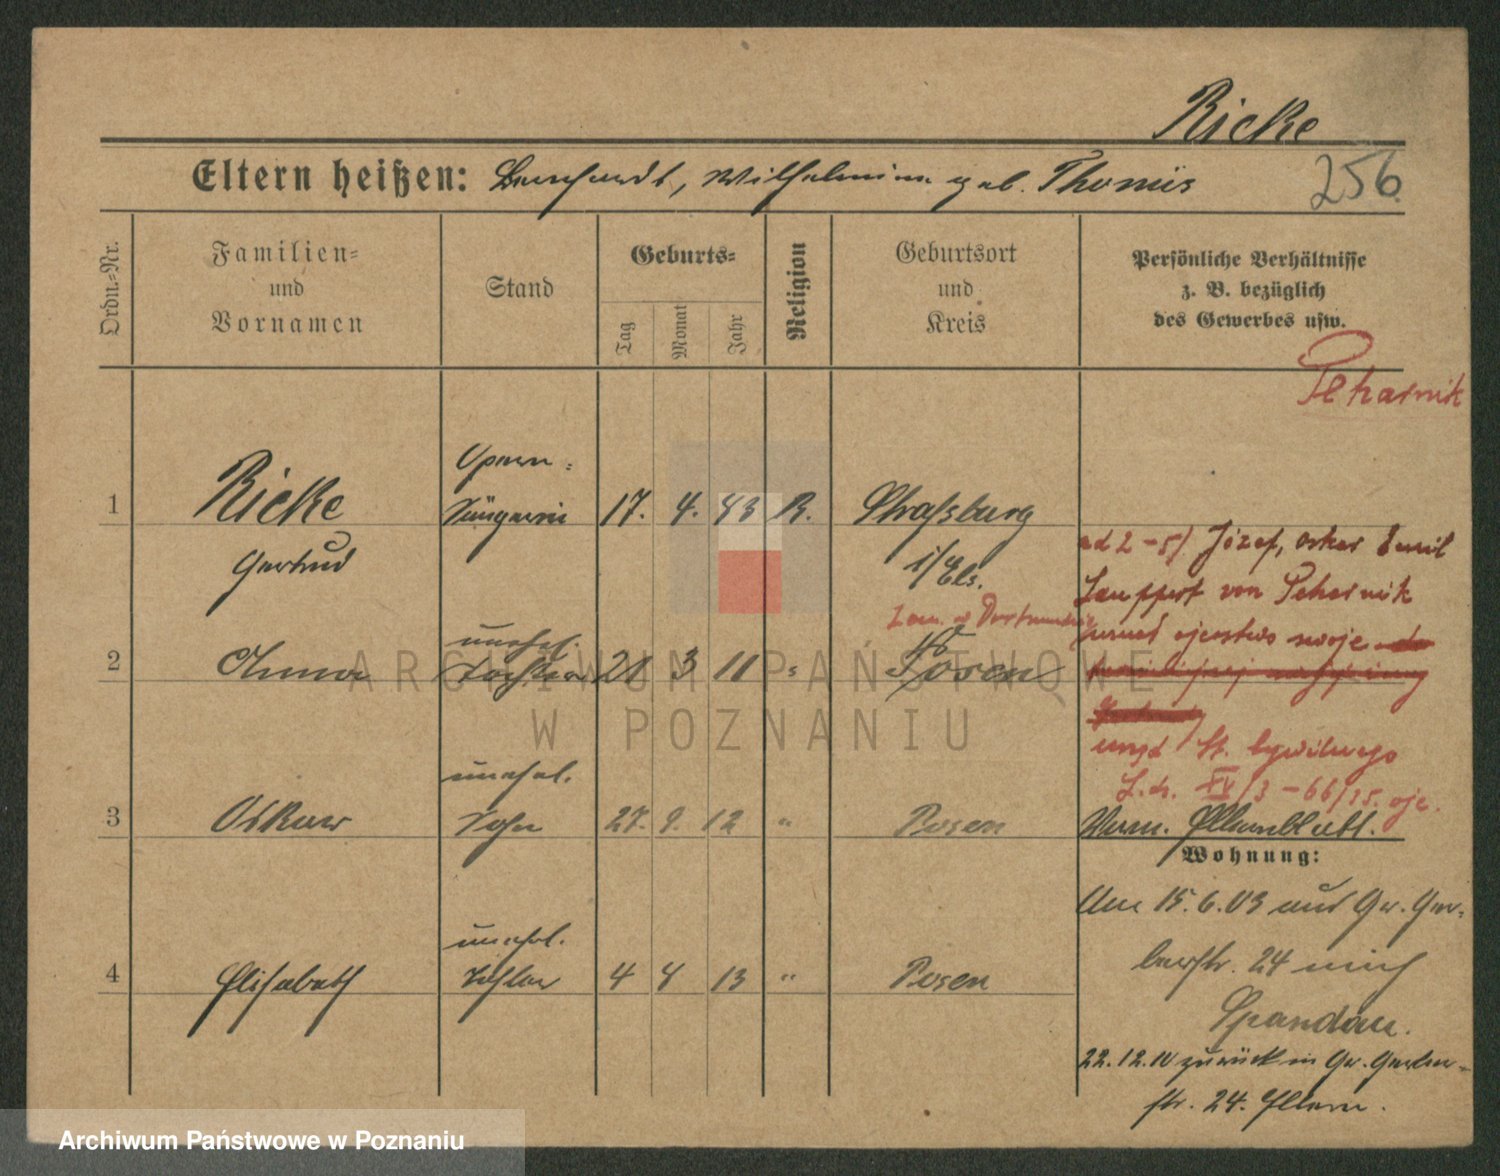 Ricke
Eltern heißen: Bernhardt, Wilhelmine geb. Thomüs
256
Ordn.-Nr.
Familien-
und
Vornamen
Stand
Geburts-
Tag
Monat
Jahr
Religion
Geburtsort
und
Kreis
Persönliche Verhältnisse
z. B. bezüglich
des Gewerbes usw.
Peharnik
1 Ricke Opern-
Sängerin 17. 4. 83 R. Straßburg
Gertrud i/Els.
ad 2-5/ Józef, Oskar Emil
Lauppert von Peharnik
Zam. w
uznał ojcostwo swoje
2 Anna unehel.
Tochter 21 3 11 " Posen
urząd st. cywilnego
L.dz. IV/3-66/15. oje.
3 Oskar unehel.
Sohn 27. 9. 12 " Posen
Verm. Elternblatt.
Wohnung:
4 Elisabeth unehel.
Tochter 4 8 13 " Posen
Am 15.6.03 aus Gr. Ger-
berstr. 24 nach
Spandau.
22.12.10 zurück in Gr. Gerber-
str. 24. Eltern.
ARCHIWUM PAŃSTWOWE
W POZNANIU
Archiwum Państwowe w Poznaniu